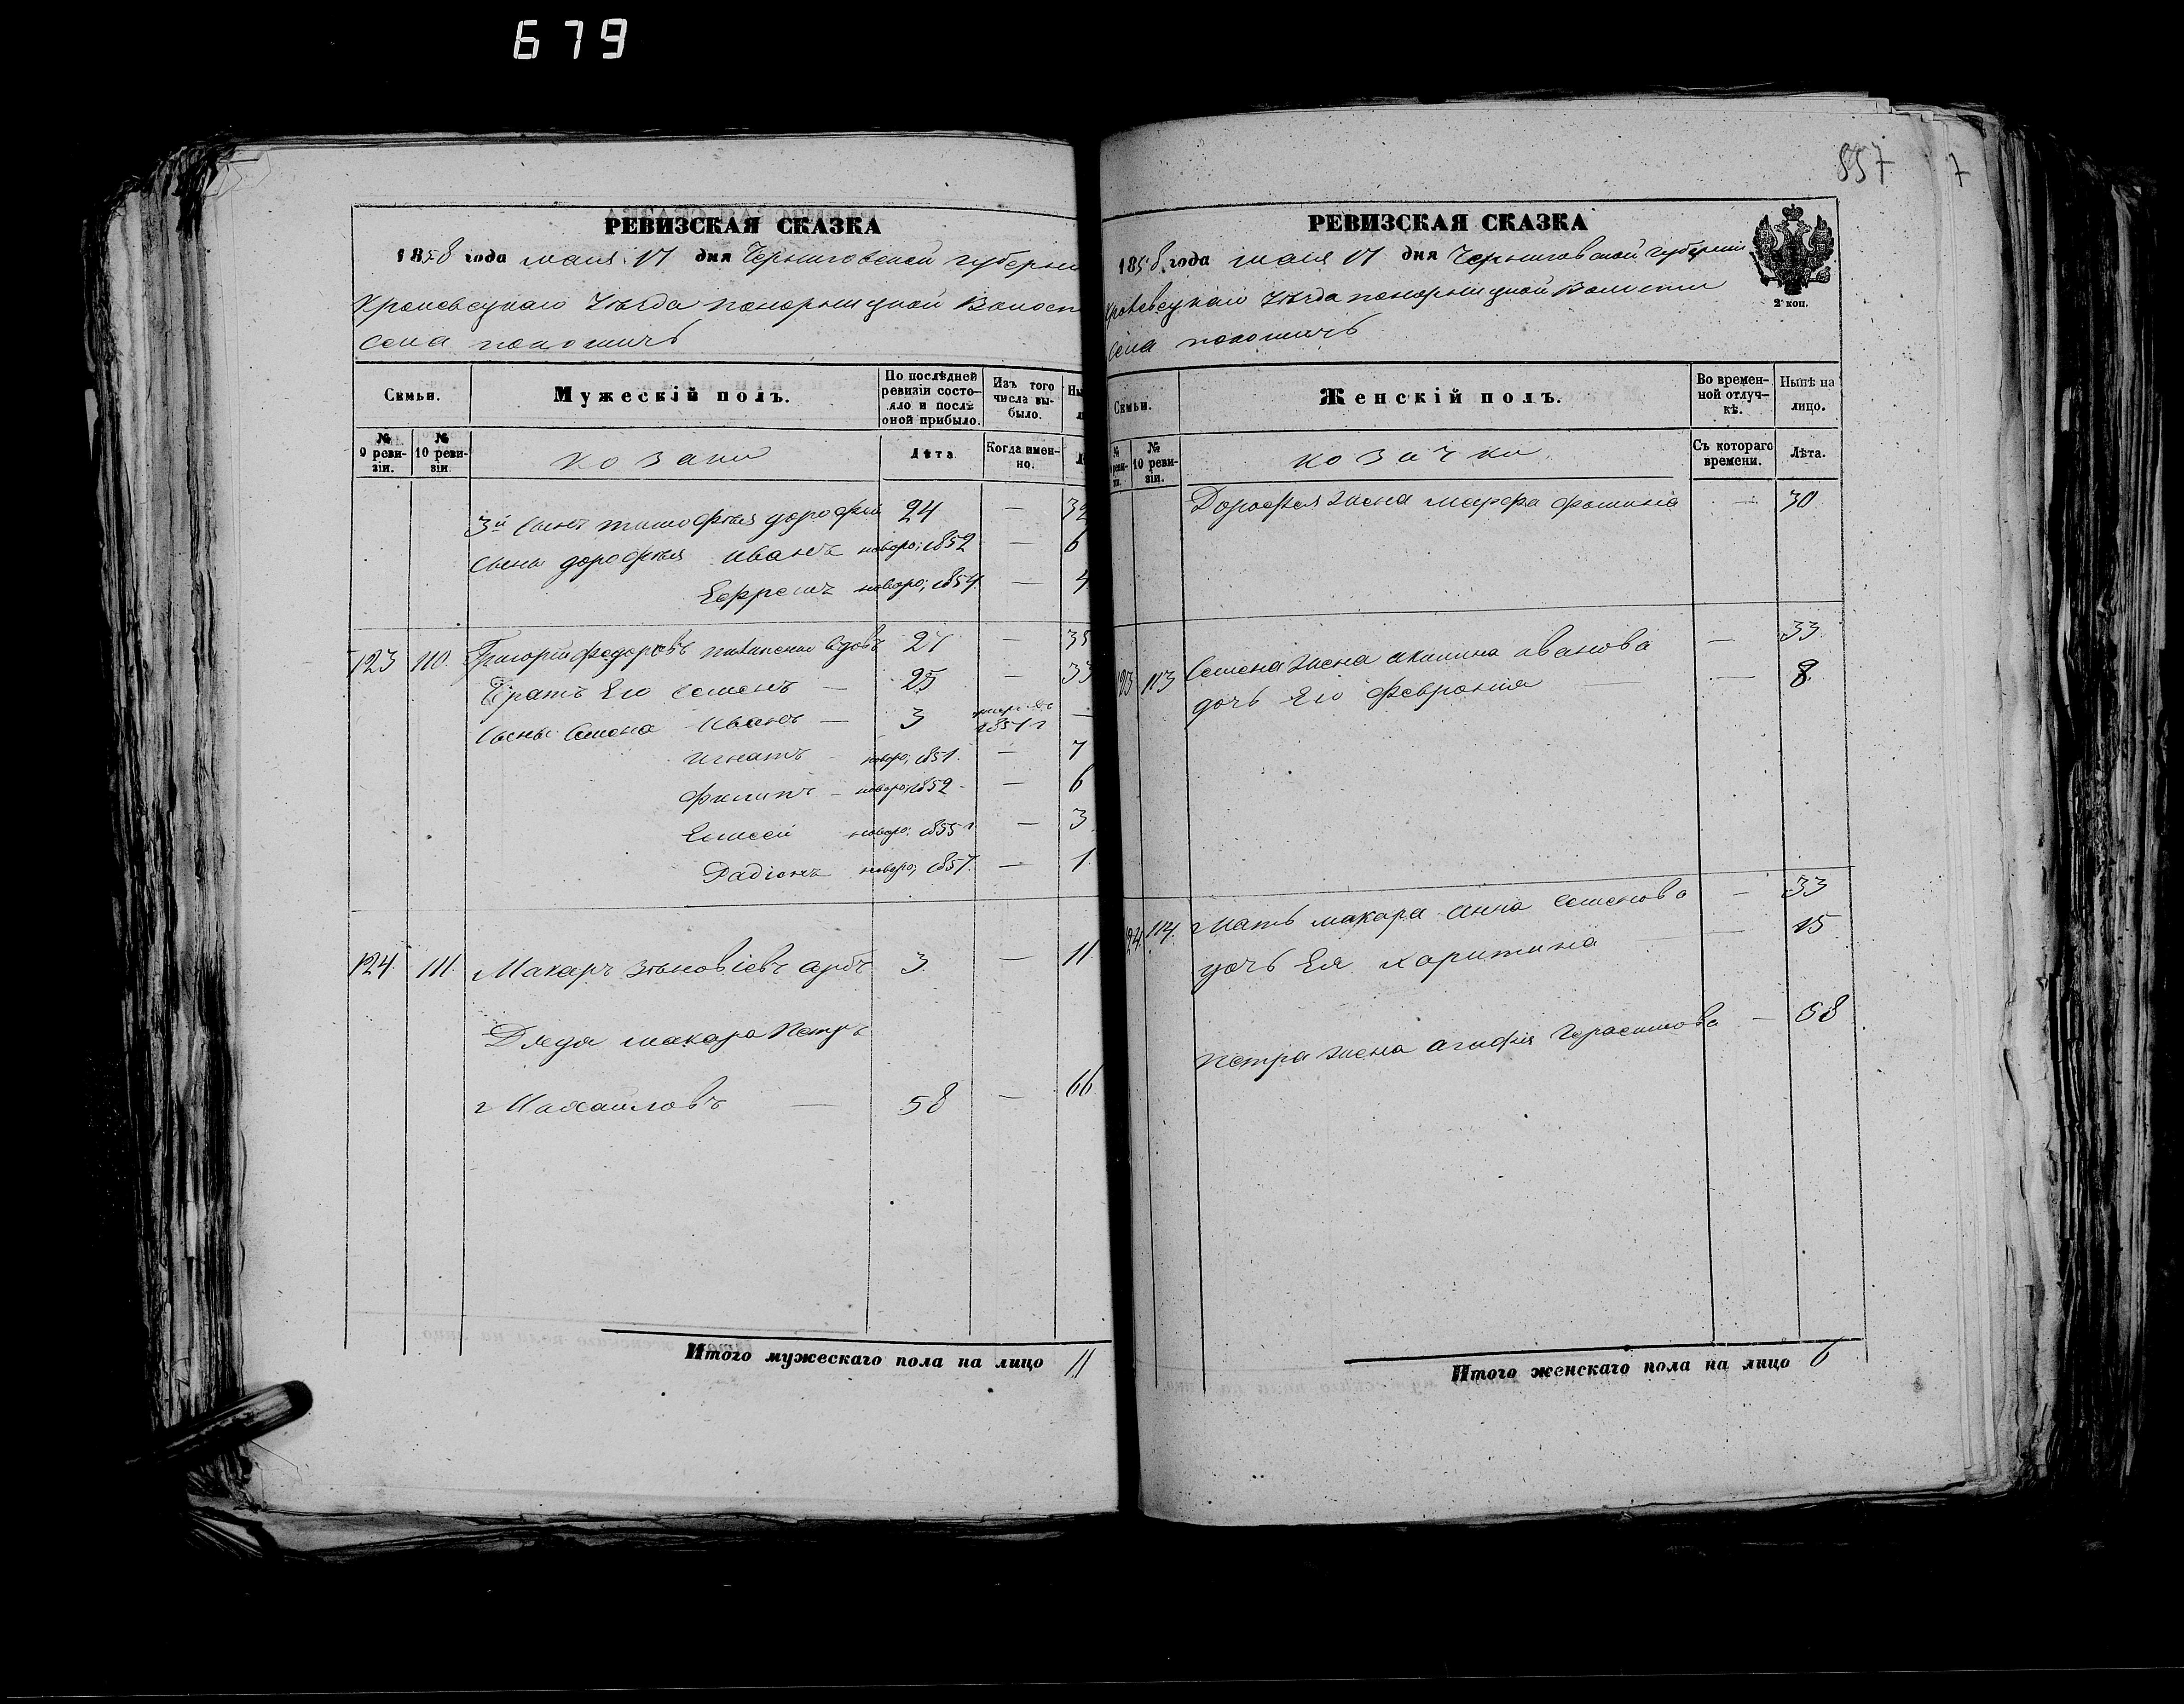 679
857
7
РЕВИЗСКАЯ СКАЗКА
1858 года мая 17 дня Черниговской губерни
Кролевецкаго Уѣзда понорницкой Волост
села покошичь
Семьи.
Мужескій полъ.
По послѣдней ревизіи состояло и послѣ оной прибыло.
Изъ того числа выбыло.
Ны
№ 9 ревизіи.
№ 10 ревизіи.
козаки
Лѣта
Когда именно.
3й сынъ тимофѣя дорофей 24 — 32
сыны дорофѣя иванъ новоро; 1852 — 6
Ефремъ новоро; 1854 — 4
123 110. Григорій федоровъ 27 — 35
Братъ Его Семенъ — 25 — 33
Сыны Семена Иванъ — 3 1851 г —
игнатъ — новоро; 1851. — 7
филипъ — новоро; 1852 — — 6
Елисей новоро; 1855 г — 3
Радіонъ новоро; 1857. — 1
124. 111. Макаръ зѣновіевъ 3. — 11
Дяда макара Петръ
Михайловъ — 58 — 66
Итого мужескаго пола на лицо 11
РЕВИЗСКАЯ СКАЗКА
1858 года мая 17 дня Черниговской губерніи
2 коп.
Кролевецкаго Уѣзда понорницкой Волости
села покошичь
Семьи.
Женскій полъ.
Во временной отлучкѣ.
Нынѣ на лицо.
№ реви-
№ 10 ревизіи.
козачки
Съ котораго времени.
Лѣта.
Дорофея жена марфа фомина — 30
123 113 Семена жена акилина иванова — 33
дочь Его Феврония — 8.
124 114. Мать макара Анна Семенова — 33
дочь Ея харитина — 15
Петра жена агафия Герасимова — 58
Итого женскаго пола на лицо 6